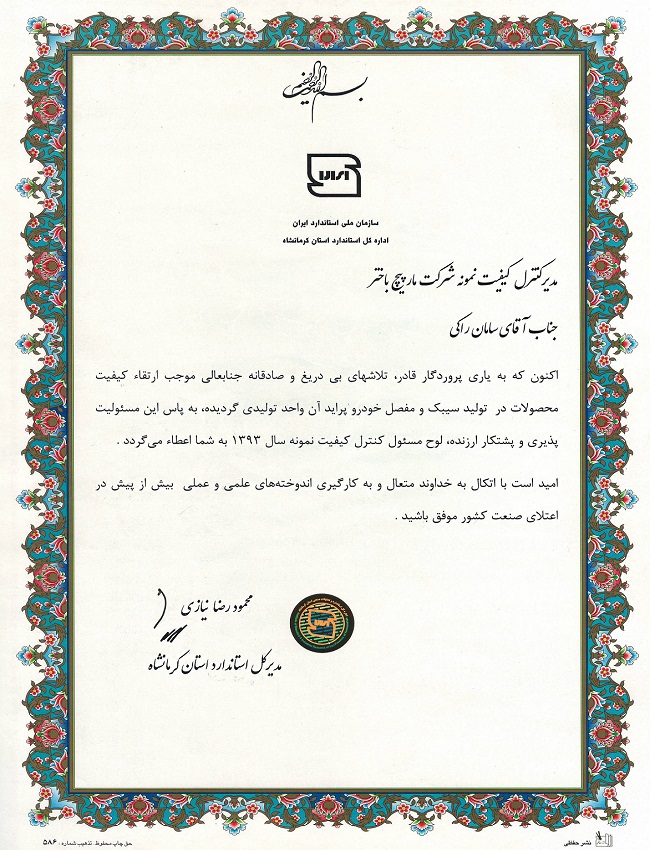 بسم الله الرحمن الرحیم
سازمان ملی استاندارد ایران
اداره کل استاندارد استان کرمانشاه
مدیر کنترل کیفیت نمونه شرکت مارپیچ باختر
جناب آقای سامان راکی
اکنون که به یاری پروردگار قادر، تلاشهای بی دریغ و صادقانه جنابعالی موجب ارتقاء کیفیت
محصولات در تولید سیبک و مفصل خودرو پراید آن واحد تولیدی گردیده، به پاس این مسئولیت
پذیری و پشتکار ارزنده، لوح مسئول کنترل کیفیت نمونه سال ۱۳۹۳ به شما اعطاء می‌گردد .
امید است با اتکال به خداوند متعال و به کارگیری اندوخته‌های علمی و عملی بیش از پیش در
اعتلای صنعت کشور موفق باشید .
محمود رضا نیازی
مدیرکل استاندارد استان کرمانشاه
نشر حفظی
حق چاپ محفوظ. تذهیب شماره: ۵۸۶